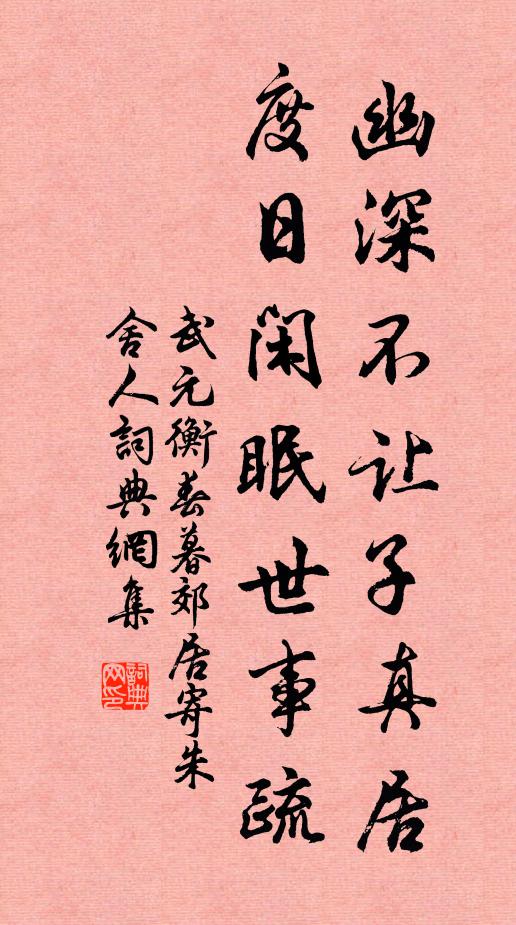 幽深不让子真居
度日闲眠世事疏
武元衡春暮郊居寄朱
舍人詞典網集
詞典
网印